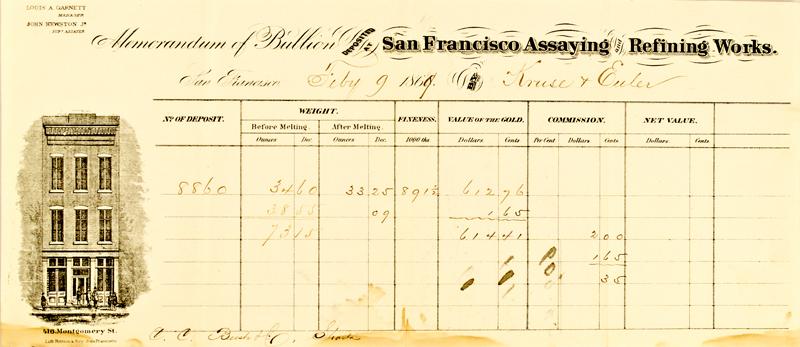 LOUIS A. GARNETT
MANAGER.
JOHN HEWSTON Jr.
SUPt. ASSAYER.
Memorandum of Bullion DEPOSITED AT San Francisco Assaying and Refining Works.
San Francisco Feby 9 1869. BY Kruse & Euler
No. OF DEPOSIT. WEIGHT. FINENESS. VALUE OF THE GOLD. COMMISSION. NET VALUE.
Before Melting. After Melting.
Ounces Dec Ounces. Dec. 1000 ths Dollars Cents Per Cent Dollars Cents Dollars. Cents
8860 34 60 33 25 891½ 612 76
38 55 09 1 65
73 15 614 41 2 00
1 65
35
416 Montgomery St.
C. C. Bush & Co, Shasta